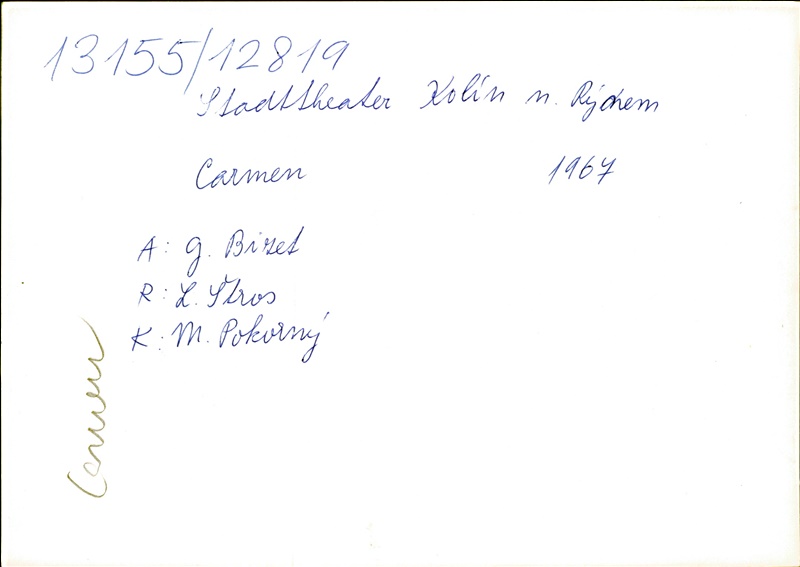 13155/12819
Stadttheater Kolín n. Rýnem
Carmen 1967
A: G. Bizet
R: L. Štros
K: M. Pokorný
Carmen